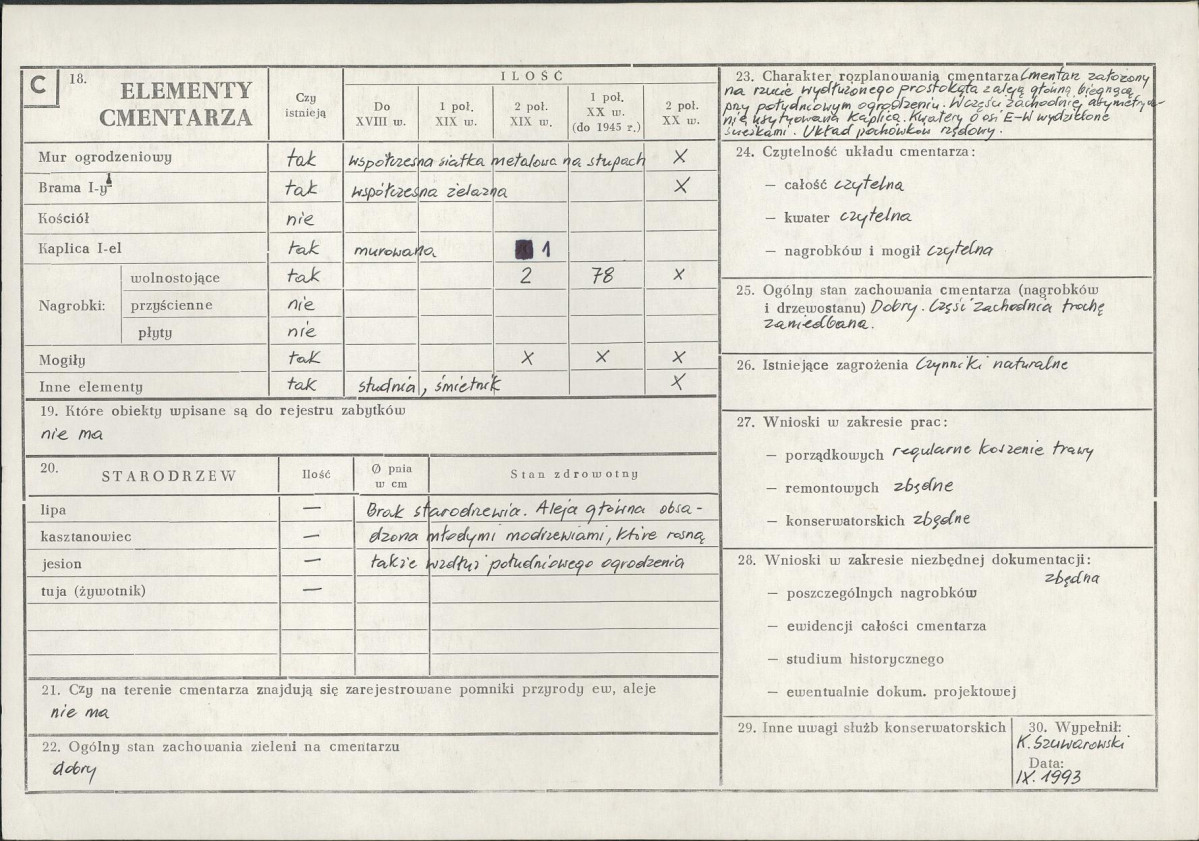 C 18. ELEMENTY CMENTARZA
Czy istnieją
ILOŚĆ
Do XVIII w.
1 poł. XIX w.
2 poł. XIX w.
1 poł. XX w. (do 1945 r.)
2 poł. XX w.
Mur ogrodzeniowy tak współczesna siatka metalowa na słupach X
Brama I-y tak współczesna żelazna X
Kościół nie
Kaplica I-el tak murowana 1
Nagrobki:
wolnostojące tak 2 78 x
przyścienne nie
płyty nie
Mogiły tak x x x
Inne elementy tak studnia, śmietnik X
19. Które obiekty wpisane są do rejestru zabytków
nie ma
20. STARODRZEW Ilość Ø pnia w cm Stan zdrowotny
lipa — Brak starodrzewia. Aleja główna obsa-
kasztanowiec — dzona młodymi modrzewiami, które rosną
jesion — także wzdłuż południowego ogrodzenia
tuja (żywotnik) —
21. Czy na terenie cmentarza znajdują się zarejestrowane pomniki przyrody ew, aleje
nie ma
22. Ogólny stan zachowania zieleni na cmentarzu
dobry
23. Charakter rozplanowania cmentarza Cmentarz założony
na rzucie wydłużonego prostokąta z aleją główną biegnącą
przy południowym ogrodzeniu. W części zachodniej asymetrycz-
nie usytuowana kaplica. Kwatery o osi E-W wydzielone
ścieżkami. Układ pochówków rzędowy.
24. Czytelność układu cmentarza:
— całość czytelna
— kwater czytelna
— nagrobków i mogił czytelna
25. Ogólny stan zachowania cmentarza (nagrobków
i drzewostanu) Dobry. Część zachodnia trochę
zaniedbana.
26. Istniejące zagrożenia Czynniki naturalne
27. Wnioski w zakresie prac:
— porządkowych regularne koszenie trawy
— remontowych zbędne
— konserwatorskich zbędne
28. Wnioski w zakresie niezbędnej dokumentacji:
zbędna
— poszczególnych nagrobków
— ewidencji całości cmentarza
— studium historycznego
— ewentualnie dokum. projektowej
29. Inne uwagi służb konserwatorskich
30. Wypełnił:
K. Szuwarowski
Data:
IX. 1993